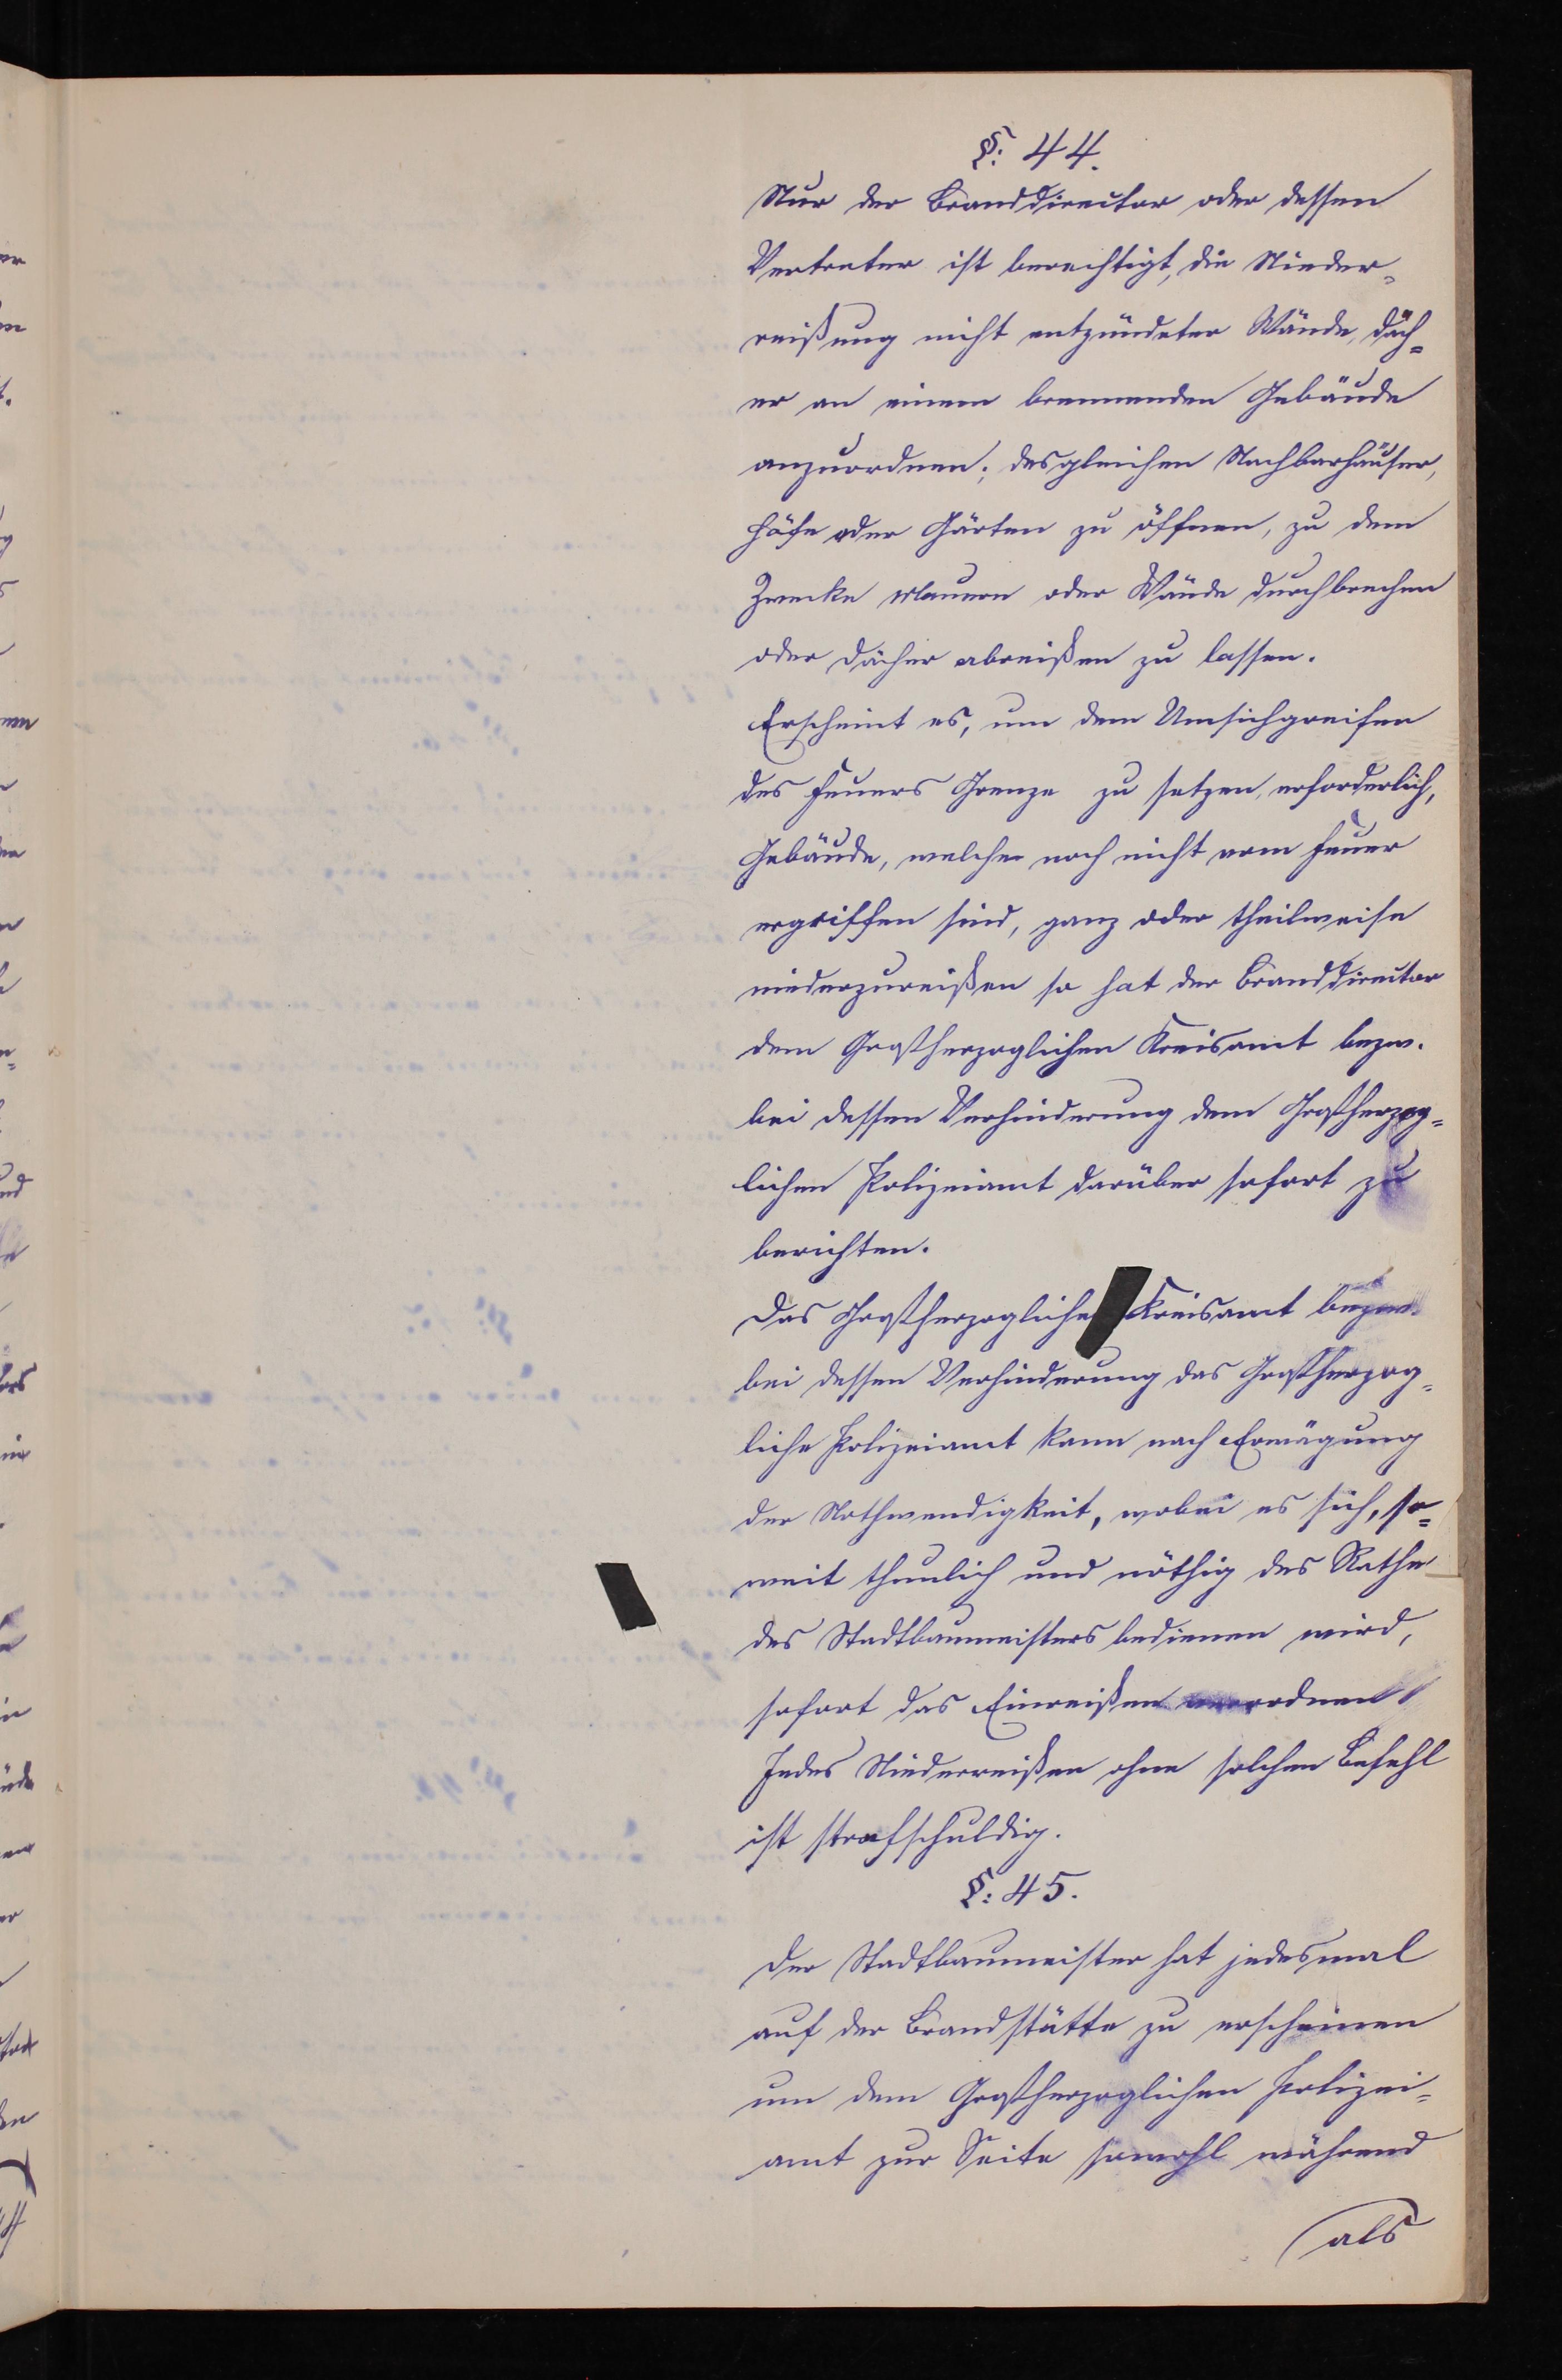 §. 44.
Nur der Branddirector oder dessen
Vertreter ist berechtigt, die Nieder-
reißung nicht entzündeter Wände, Däch=
er an einem brennenden Gebäude
anzuordnen; desgleichen Nachbarhäuser,
Höfe oder Gärten zu öffnen, zu dem
Zwecke Mauern oder Wände durchbrechen
oder Dächer abreißen zu lassen.
Erscheint es, um dem Umsichgreifen
des Feuers Grenze zu setzen, erforderlich,
Gebäude, welche noch nicht vom Feuer
ergriffen sind, ganz oder theilweise
niederzureißen so hat der Branddirector
dem Großherzoglichen Kreisamt bezw.
bei dessen Verhinderung dem Großherzog=
lichen Polizeiamt darüber sofort zu
berichten.
Das Großherzogliche Kreisamt bezw.
bei dessen Verhinderung das Großherzog=
liche Polizeiamt kann nach Erwägung
der Nothwendigkeit, wobei es sich, so=
weit thunlich und nöthig des Rathes
des Stadtbaumeisters bedienen wird,
sofort das Einreißen anordnen
Jedes Niederreißen ohne solchen Befehl
ist strafschuldig.
§. 45.
Der Stadtbaumeister hat jedesmal
auf der Brandstätte zu erscheinen
um dem Großherzoglichen Polizei=
amt zur Seite sowohl während
als